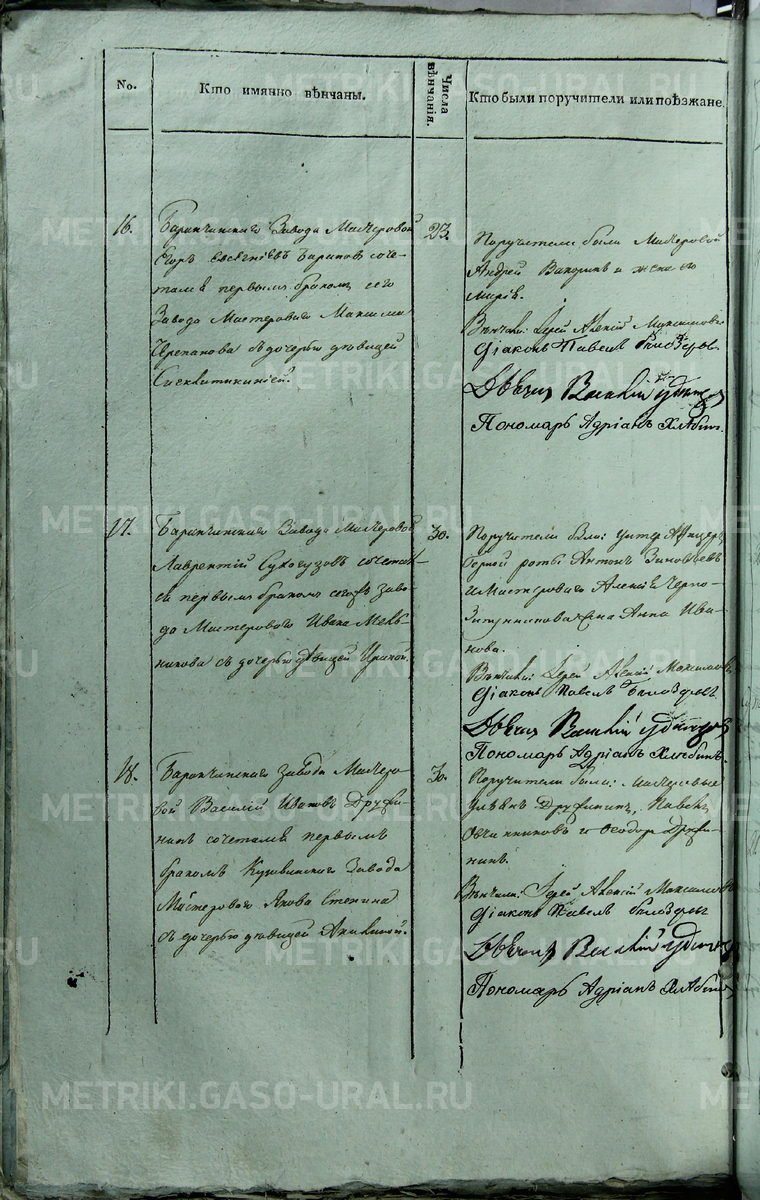 No.
Кто имянно вѣнчаны.
Числа вѣнчанія.
Кто были поручители или поѣзжане.
16.
Баранчинскаго Завода Мастеровой
Егоръ Баранов соче-
тался первымъ бракомъ сего
Завода Мастероваго Максима
Черепанова съ дочерью дѣвицей
23.
Поручители были Мастеровой
Андрей и жена его
Марія.
Вѣнчали: Іерей Алексій Максимовъ
Діаконъ Павелъ Бѣлозеровъ
Дьячекъ Василій Удинцовъ
Пономарь Адріанъ Хлѣбинъ
17.
Баранчинскаго Завода Мастеровой
Лаврентій Сухогузовъ сочетал-
ся первымъ бракомъ сегожъ заво-
да Мастероваго Ивана Мель-
никова съ дочерью дѣвицей Ириной.
30.
Поручители были: Унтер
роты Антонъ Зиновьевъ
и Мастероваго Алексѣя
жена Анна Ива-
нова.
Вѣнчали: Іерей Алексій Максимовъ
Діаконъ Павелъ Бѣлозеровъ
Дьячекъ Василій Удинцовъ
Пономарь Адріанъ Хлѣбинъ.
18.
Баранчинскаго завода Мастеро-
вой Василій Ивановъ Дружи-
нинъ сочетался первымъ
бракомъ Кушвинскаго Завода
Мастероваго Якова Степина
съ дочерью дѣвицей Акилиной.
30.
Поручители были: Мастеровые
Ульянъ Дружининъ, Павелъ
Овчинниковъ и Ѳеодоръ Дружи-
нинъ.
Вѣнчали: Іерей Алексій Максимовъ
Діаконъ Павелъ Бѣлозеровъ
Дьячекъ Василій Удинцовъ
Пономарь Адріанъ Хлѣбинъ
METRIKI.GASO-URAL.RU